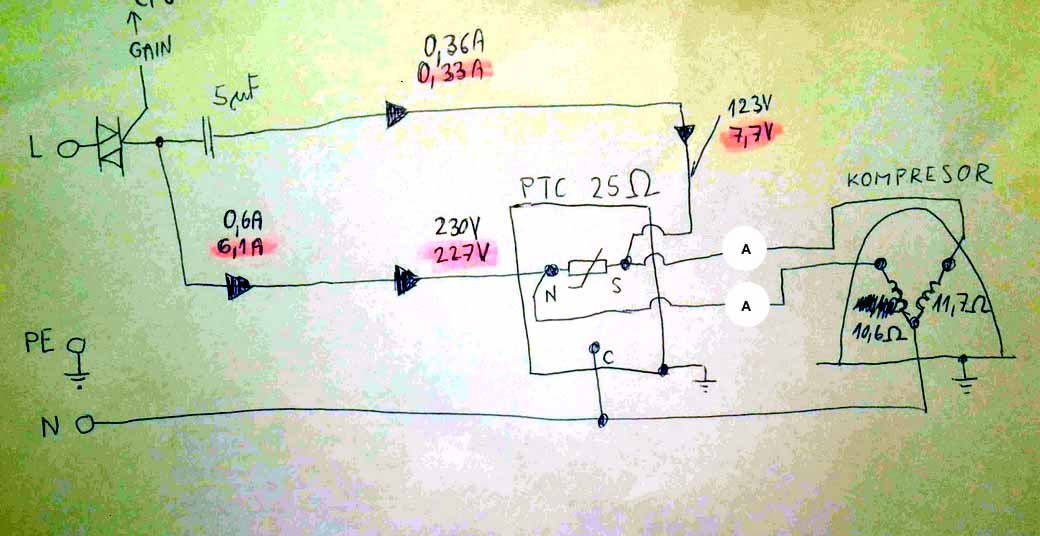 GAIN
0,36A
0,33A
5µF
L
123V
7,7V
PTC 25Ω
KOMPRESOR
0,6A
6,1A
230V
227V
A
N
S
A
11,7Ω
10,6Ω
PE
C
N